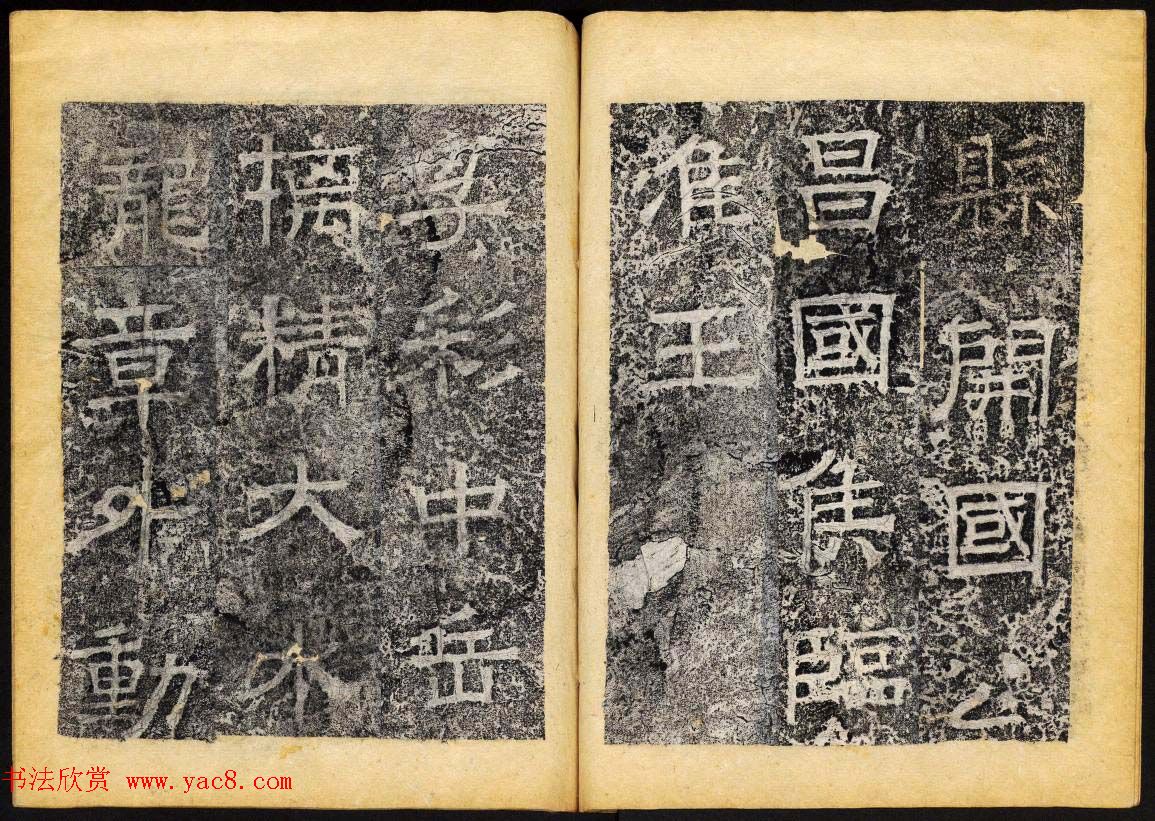 縣開國公
昌國侯臨
淮王
孕彩中岳
摛精大水
龍章外動
书法欣赏 www.yac8.com